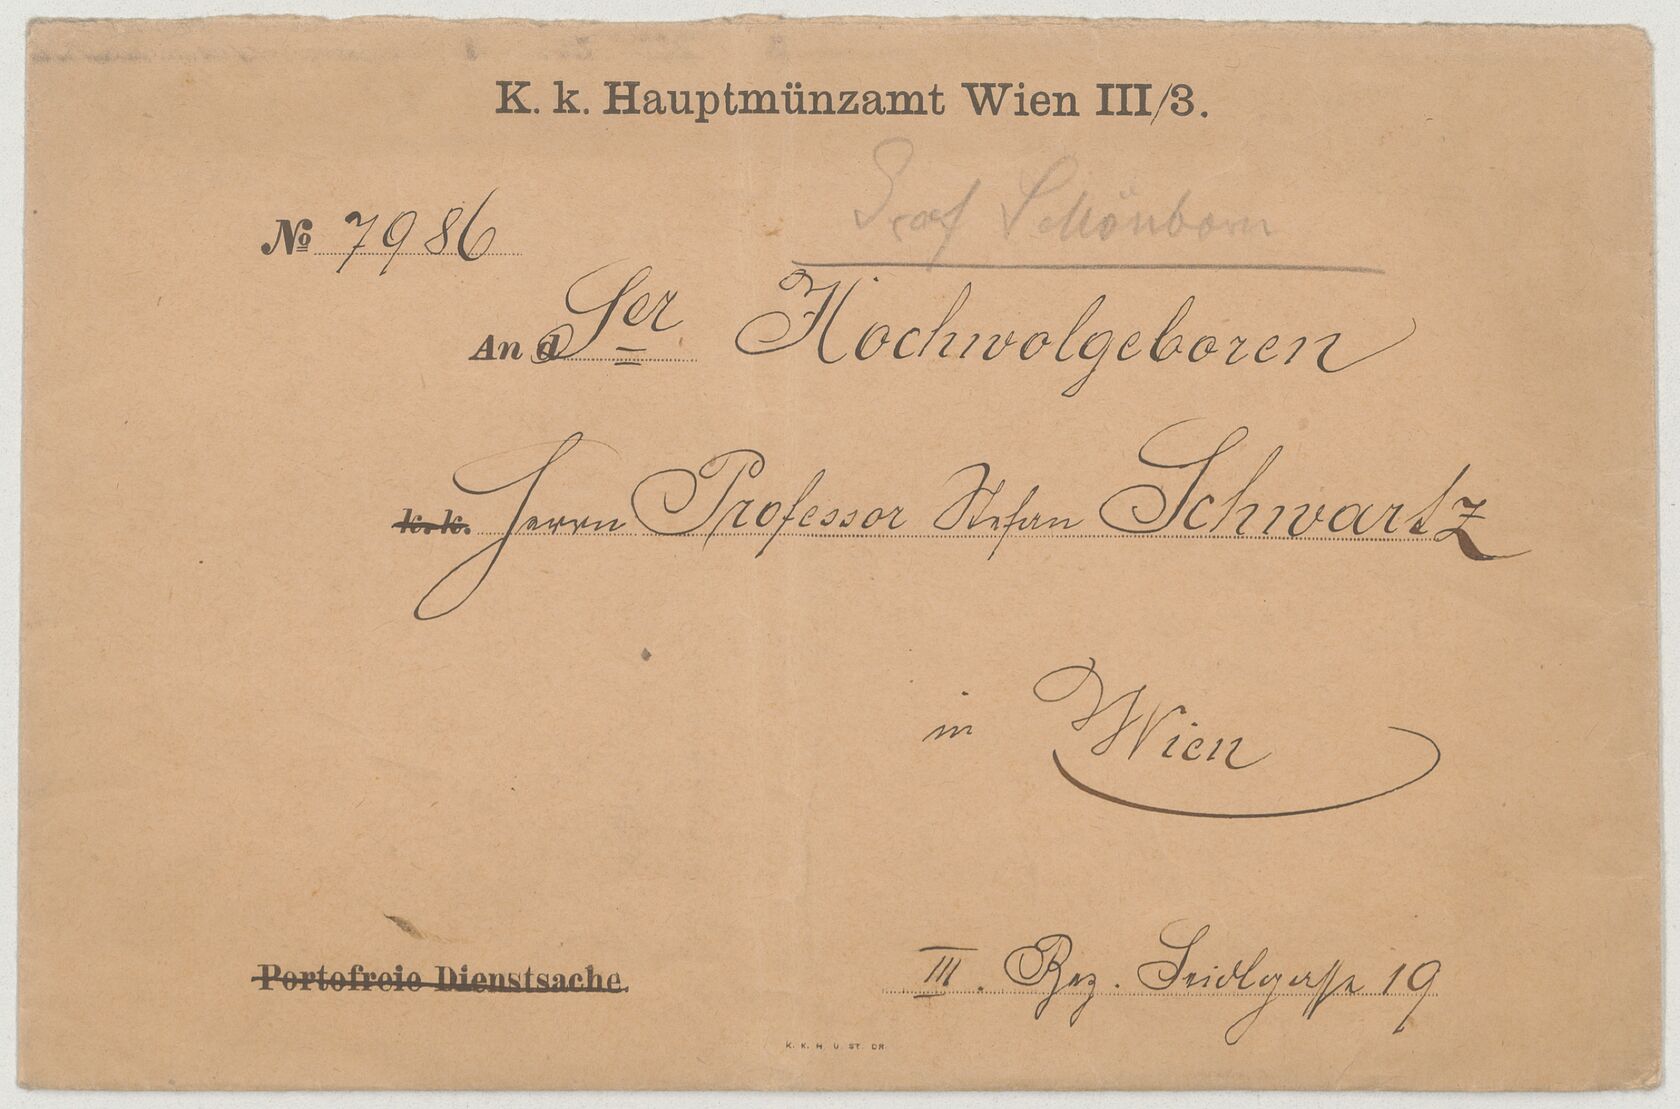 K. k. Hauptmünzamt Wien III/3.
Graf Schönborn
№ 7986
An d Ser Hochwolgeboren
k. k. Herrn Professor Stefan Schwartz
in Wien
Portofreie Dienstsache.
III. Bez. Seidlgasse 19
K. K. H. U. ST. DR.